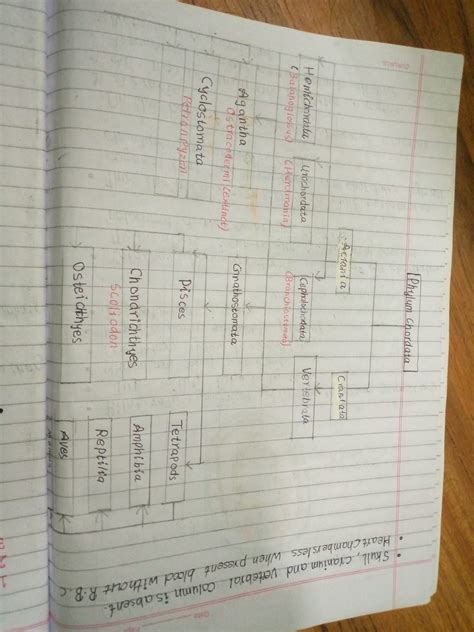 Phylum Chordata
Acrania
Craniata
Hemichordata
(Balanoglossus)
Urochordata
(Herdmania)
Cephalochordata
(Branchiostoma)
Vertebrata
Agantha
Ostracodermi (extinct)
Gnathostomata
Cyclostomata
Petromyzon
Pisces
Tetrapods
Chondrichthyes
Scoliodon
Amphibia
Osteichthyes
Reptilia
Aves
• Skull, cranium and vertebral column is absent.
• Heart chamberless when present blood without R.B.C